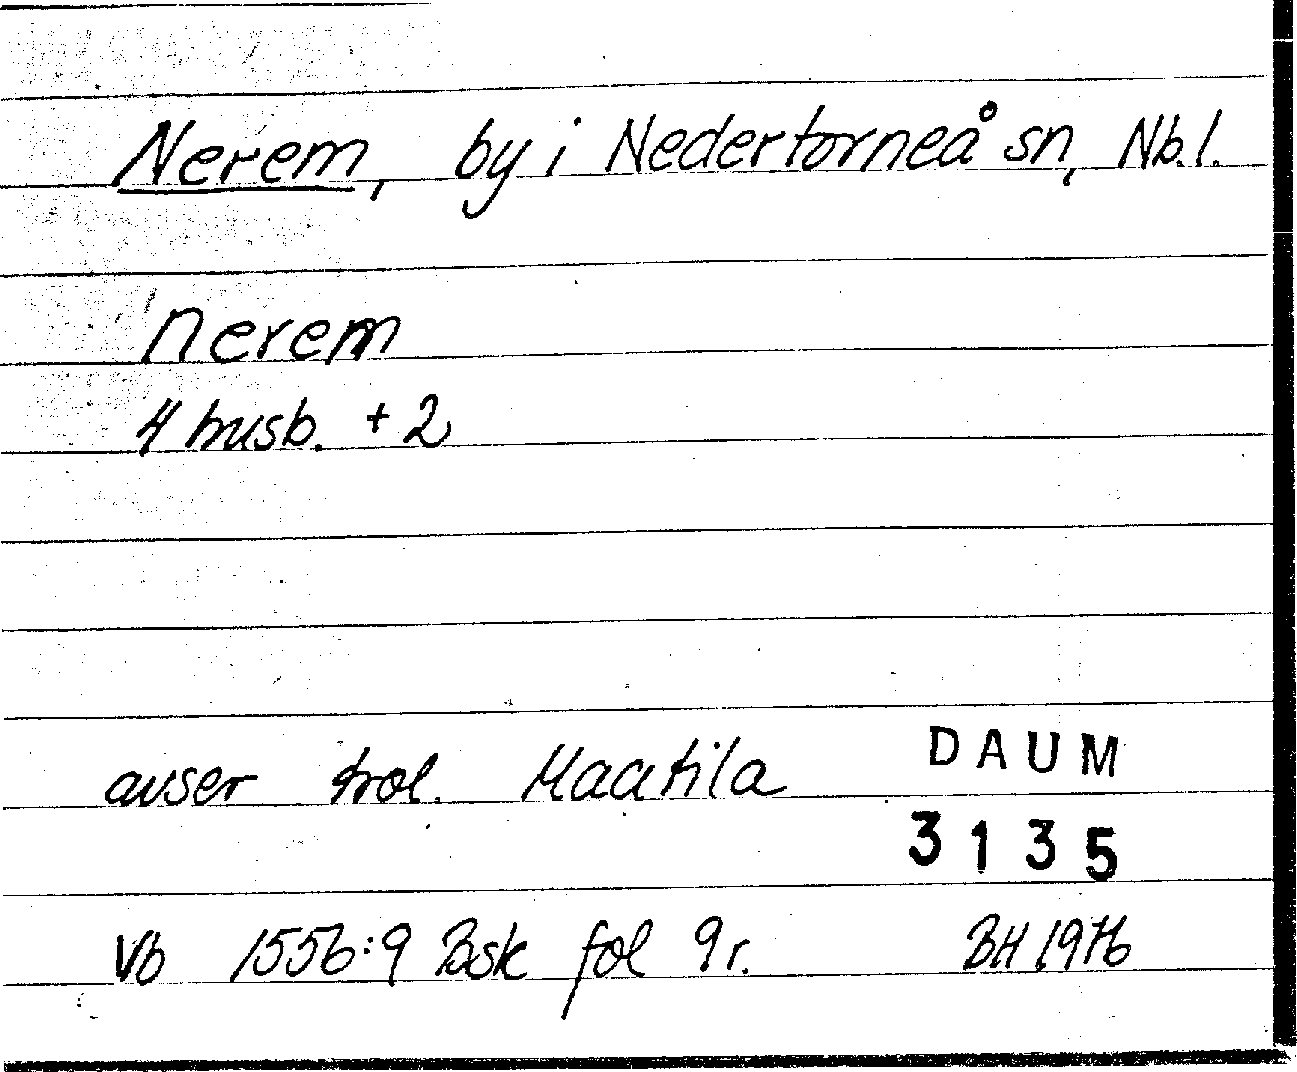 Nerem, by i Nedertorneå sn, Nb.l.
nerem
4 husb. + 2
avser trol. Maatila
DAUM
3135
Vb 1556:9 Bsk fol 9 r. BH 1976